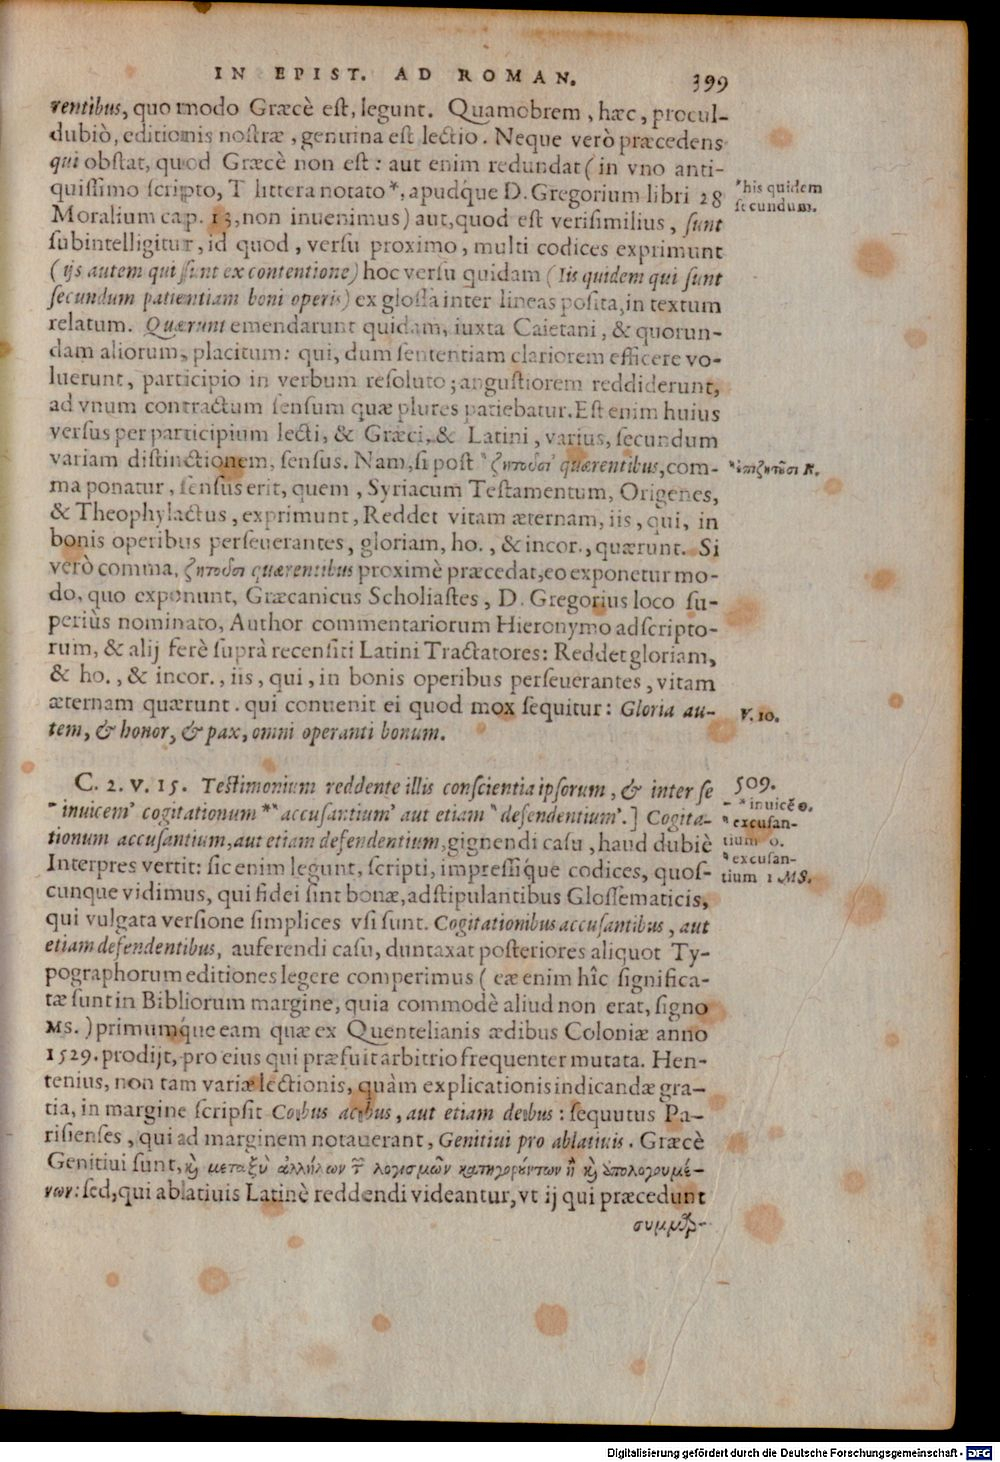 IN EPIST. AD ROMAN. 399
rentibus, quo modo Græcè est, legunt. Quamobrem, hæc, procul-
dubiò, editionis nostræ, genuina est lectio. Neque verò præcedens
qui obstat, quod Græcè non est: aut enim redundat (in vno anti-
quissimo scripto, T littera notato*, apudq́ue D. Gregorium libri 28
*his quidem
secundum.
Moralium cap. 13, non inuenimus) aut, quod est verisimilius, sunt
subintelligitur, id quod, versu proximo, multi codices exprimunt
(ijs autem qui sunt ex contentione) hoc versu quidam (Iis quidem qui sunt
secundum patientiam boni operis) ex glossa inter lineas posita, in textum
relatum. Quærunt emendarunt quidam, iuxta Caietani, & quorun-
dam aliorum, placitum: qui, dum sententiam clariorem efficere vo-
luerunt, participio in verbum resoluto; angustiorem reddiderunt,
ad vnum contractum sensum quæ plures patiebatur. Est enim huius
versus per participium lecti, & Græci, & Latini, varius, secundum
variam distinctionem, sensus. Nam, si post " ζητοῦσι' quærentibus, com-
"ἐπιζητοῦσι R.
ma ponatur, sensus erit, quem, Syriacum Testamentum, Origenes,
& Theophylactus, exprimunt, Reddet vitam æternam, iis, qui, in
bonis operibus perseuerantes, gloriam, ho., & incor., quærunt. Si
verò comma, ζητοῦσι quærentibus proximè præcedat, eo exponetur mo-
do, quo exponunt, Græcanicus Scholiastes, D. Gregorius loco su-
periùs nominato, Author commentariorum Hieronymo adscripto-
rum, & alij ferè suprà recensiti Latini Tractatores: Reddet gloriam,
& ho., & incor., iis, qui, in bonis operibus perseuerantes, vitam
æternam quærunt. qui conuenit ei quod mox sequitur: Gloria au-
V. 10.
tem, & honor, & pax, omni operanti bonum.
C. 2. V. 15. Testimonium reddente illis conscientia ipsorum, & inter se
509.
" inuicem' cogitationum *" accusantium' aut etiam " defendentium'.] Cogita-
" * inuicē o.
" excusan-
tium o.
" excusan-
tium 1 MS.
tionum accusantium, aut etiam defendentium, gignendi casu, haud dubiè
Interpres vertit: sic enim legunt, scripti, impressiq́ue codices, quos-
cunque vidimus, qui fidei sint bonæ, adstipulantibus Glossematicis,
qui vulgata versione simplices vsi sunt. Cogitationibus accusantibus, aut
etiam defendentibus, auferendi casu, duntaxat posteriores aliquot Ty-
pographorum editiones legere comperimus (eæ enim hîc significa-
tæ sunt in Bibliorum margine, quia commodè aliud non erat, signo
MS.) primumq́ue eam quæ ex Quentelianis ædibus Coloniæ anno
1529. prodijt, pro eius qui præfuit arbitrio frequenter mutata. Hen-
tenius, non tam variæ lectionis, quàm explicationis indicandæ gra-
tia, in margine scripsit Co͞ibus ac͞ibus, aut etiam de͞ibus: sequutus Pa-
risienses, qui ad marginem notauerant, Genitiui pro ablatiuis. Græcè
Genitiui sunt, καὶ μεταξὺ ἀλλήλων τῶν λογισμῶν κατηγορούντων ἢ καὶ ἀπολογουμέ-
νων: sed, qui ablatiuis Latinè reddendi videantur, vt ij qui præcedunt
συμμαρ-
Digitalisierung gefördert durch die Deutsche Forschungsgemeinschaft - DFG